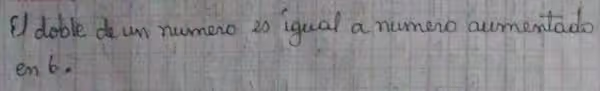 El doble de un numero es igual a numero aumentado
en 6.